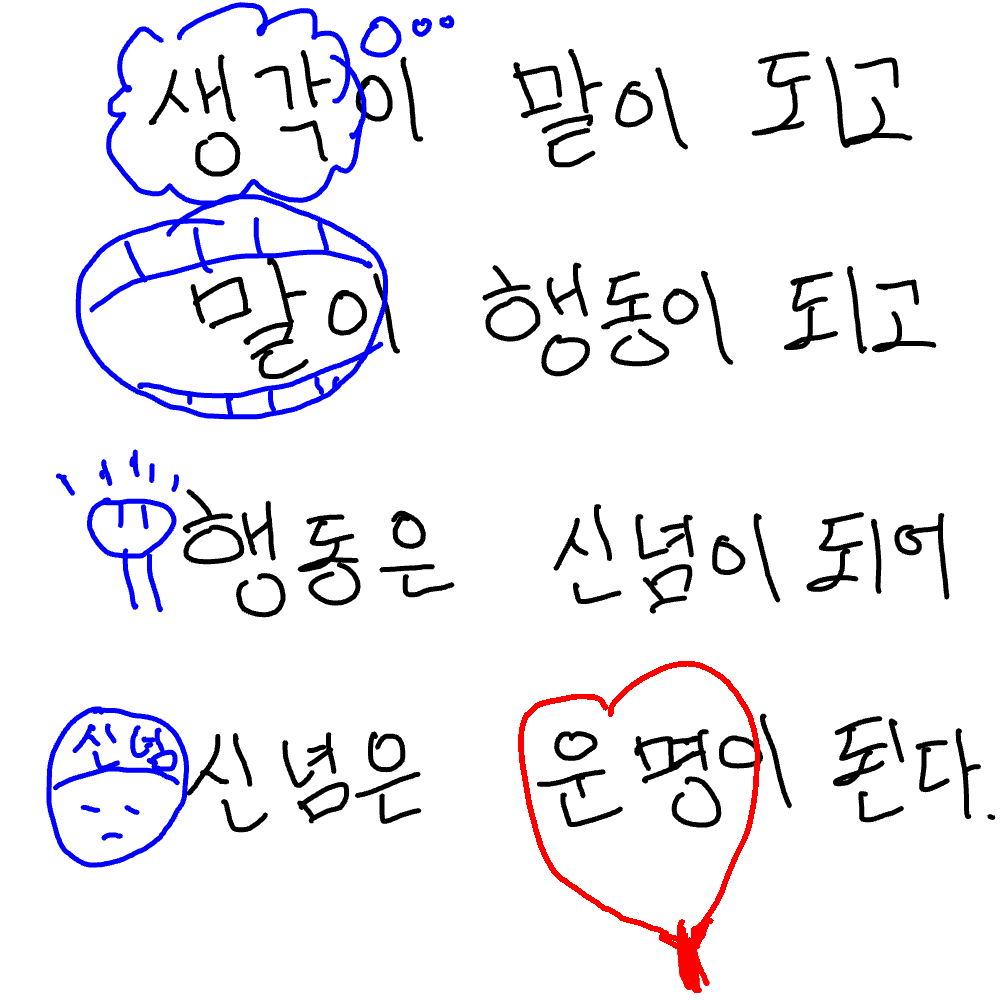 생각이 말이 되고
말이 행동이 되고
행동은 신념이 되어
신념
신념은 운명이 된다.